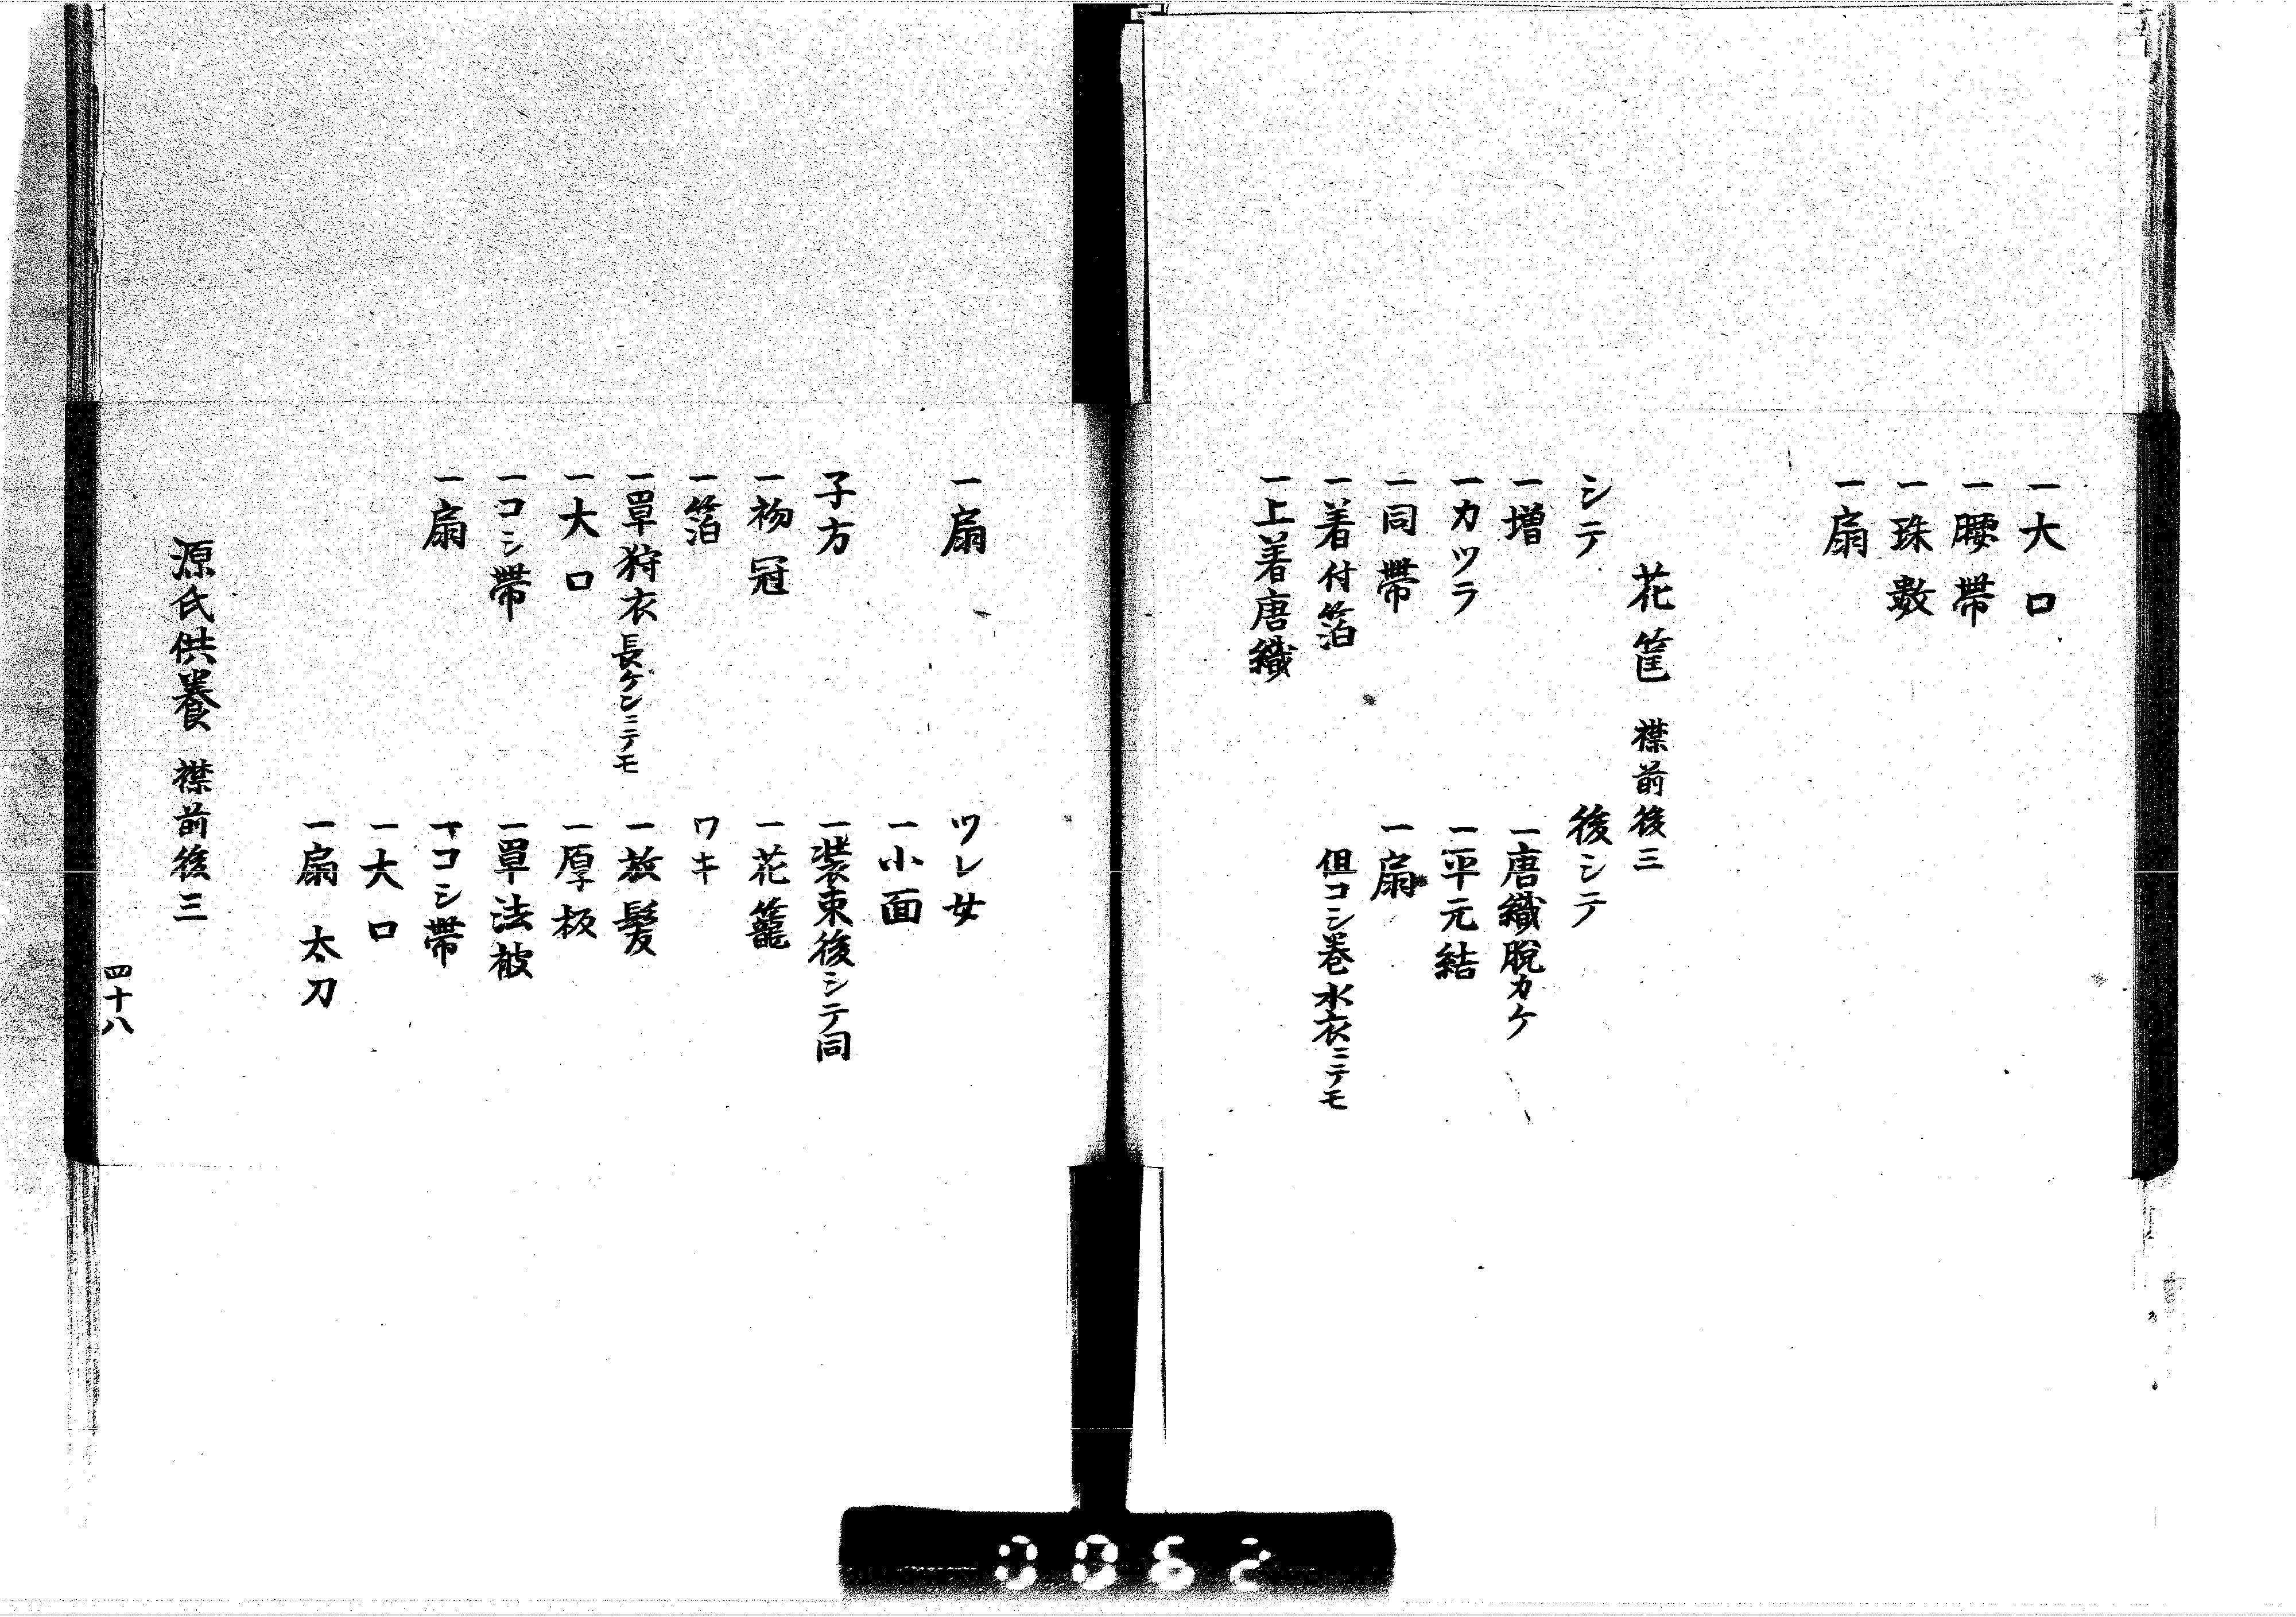 一大口
一腰帯
一珠数
一扇
花筐 襟前後三
シテ
一増
一カツラ
一同帯
一着付箔
一上着唐織
後シテ
一唐織脱カケ
一平元結
一扇
但コシ巻水衣ニテモ
一扇
子方
一初冠
一箔
一単狩衣長ケンニテモ
一大口
一コシ帯
一扇
ツレ女
一小面
一装束後シテ同
一花籠
ワキ
一放髪
一厚板
一単法被
一コシ帯
一大口
一扇 太刀
源氏供養 襟前後三
四十八
0062